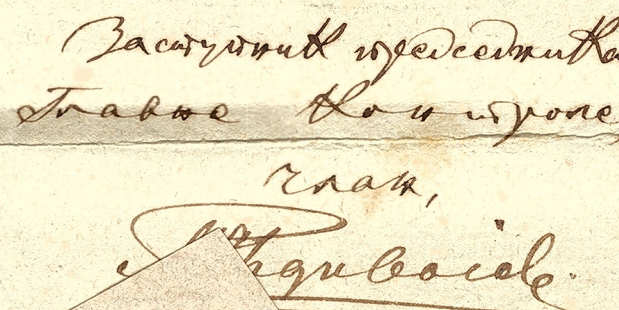 Заступник председника
Главне Контроле,
члан,